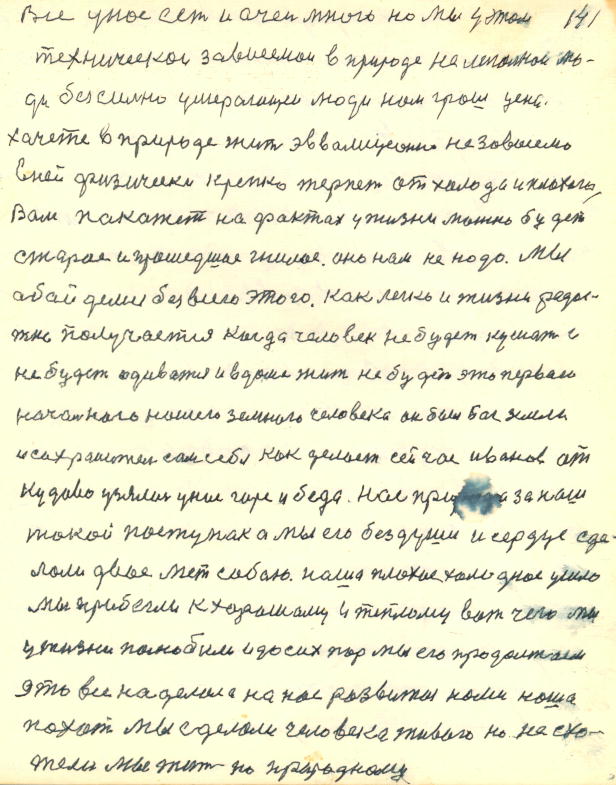 Все унас ест и очен много но мы у этом 141
техническои зависемои в природе на легопнои лю-
ди безсилно умерающеи люди нам грош цена.
хачете в природе жит эввалиционо незовисемо
в ней физически крепко терпет от холода и плохого,
Вам пакажет на фактах у жизни можно будет
старое и прошедшае гнилое. оно нам не надо. Мы
абайдемся без всего этого. Как легко и жизни радос-
жно получается когда человек не будет кушат и
не будет одиватя и вдоме жит не будет это первого
началного нашего земного человека он был бог земли
и сахранител сам себя как делает сейчас иванов от
кудово узялас унас горе и беда. Нас за наш
такой поступак а мы его бездуши и сердце сде-
лали двое мест сабою. наша плохое холодное ушло
Мы прибегли к хорошаму и теплому вот чего мы
у жизни полюбили и досих пор мы его продолжаем
это все наделала на нас развитая нами наша
похот Мы сделали человека живого но не схо-
тели мы жит по природному